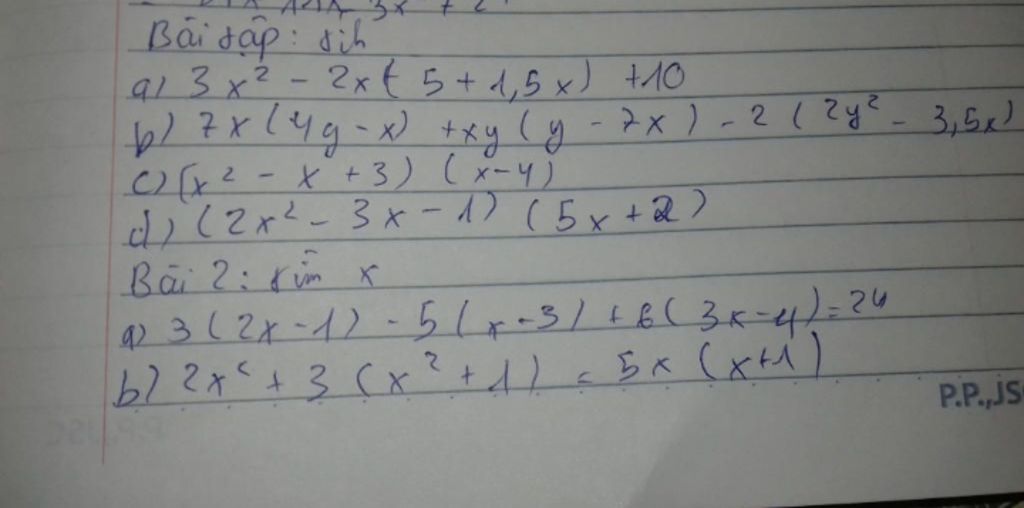 Bài tập : tính
a) 3x² - 2x( 5 + 1,5x) +10
b) 7x (4y - x) + xy ( y - 7x ) - 2 ( 2y² - 3,5x)
c) (x² - x + 3) (x-4)
d) (2x² - 3x - 1) (5x + 2)
Bài 2 : tìm x
a) 3 (2x - 1) - 5 (x - 3) + 6 ( 3x - 4) = 24
b) 2x² + 3 (x² + 1) = 5x (x+1)
P.P.,JS